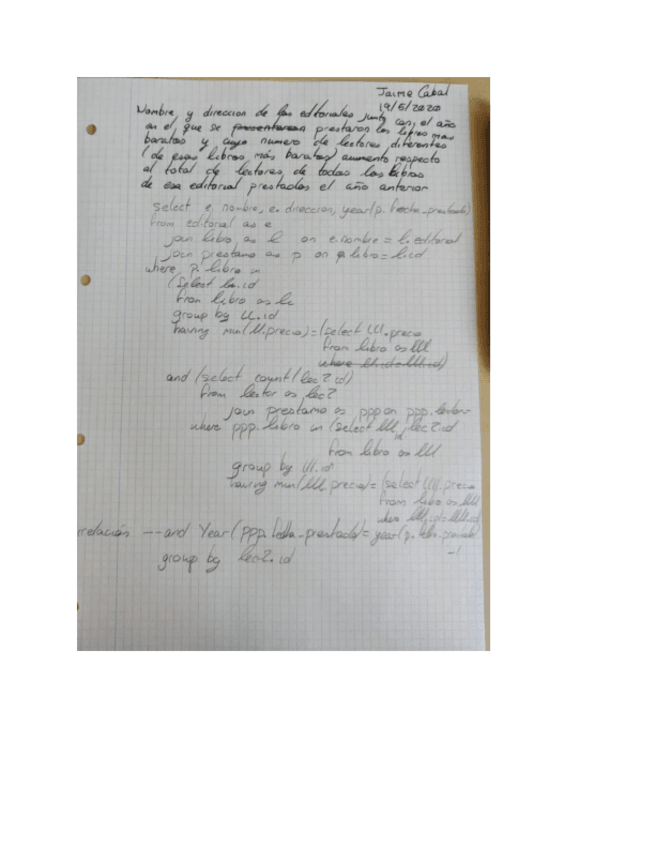 Jaime Cabal
19/5/2020
Nombre y direccion de las editoriales junto con el año
en el que se presentaron prestaron los libros mas
baratos y cuyo numero de lectores diferentes
(de esos libros más baratos) aumento respecto
al total de lectores de todos los libros
de esa editorial prestados el año anterior
select e.nombre, e.direccion, year(p.fecha_prestado)
from editorial as e
join libro as l on e.nombre = l.editorial
join prestamo as p on p.libro = l.id
where p.libro in
(select ll.id
from libro as ll
group by ll.id
having min(ll.precio) = (select lll.precio
from libro as lll
where ll.id = lll.id)
and (select count(lec2.id)
from lector as lec2
join prestamo as ppp on ppp.lector=
lec2.id
where ppp.libro in (select lll.id
from libro as lll
group by lll.id
having min(lll.precio) = (select llll.precio
from libro as llll
where lll.id = llll.id
rrelación -- and Year(ppp.fecha_prestado) = year(p.fecha_prestado)
-1
group by lec2.id